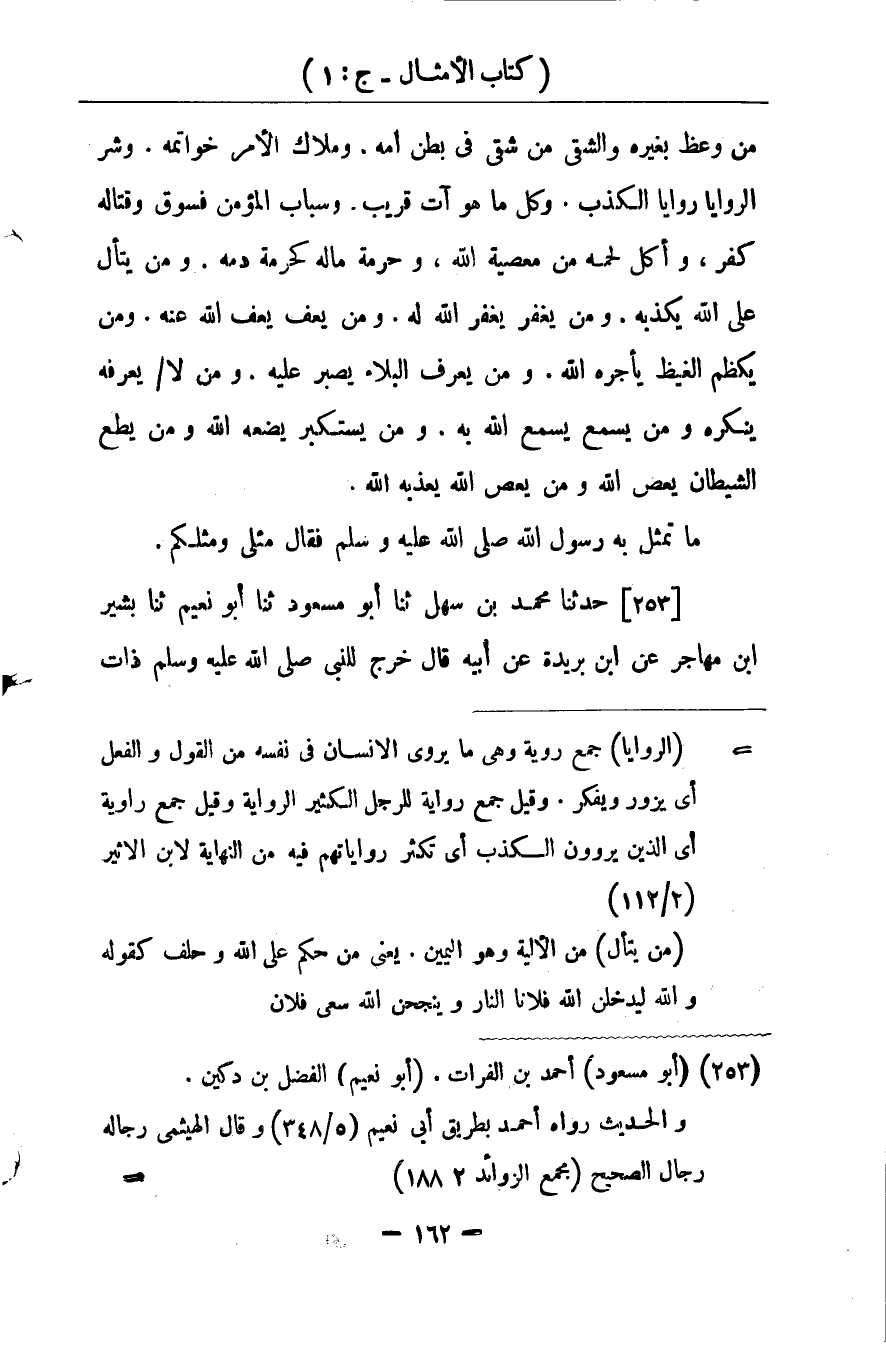 ( كتاب الأمثـال ـ ج : ١ )
من وعظ بغيره والشقى من شقى فى بطن أمه . وملاك الأمر خواتمه . وشر
الروايا روايا الـكذب . وكل ما هو آت قريب . وسباب المؤمن فسوق وقتاله
كفر ، و أكل لحمـه من معصية الله ، و حرمة ماله كحرمة دمه . و من يتأل
على الله يكذبه . و من يغفر يغفر الله له . و من يعف يعف الله عنه . ومن
يكظم الغيظ يأجره الله . و من يعرف البلاء يصبر عليه . و من لا/ يعرفه
ينـكره و من يسمع يسمع الله به . و من يستـكبر يضعه الله و من يطع
الشيطان يعض الله و من يعص الله يعذبه الله .
ما تمثل به رسول الله صلى الله عليه و سلم فقال مثلى ومثلـكم .
[٢٥٣] حدثنا محمـد بن سهل ثنا أبو مسعود ثنا أبو نعيم ثنا بشير
ابن مهاجر عن ابن بريدة عن أبيه قال خرج للنبى صلى الله عليه وسلم ذات
= (الروايا) جمع روية وهى ما يروى الانسـان فى نفسه من القول و الفعل
أى يزور ويفكر . وقيل جمع رواية للرجل الـكثير الرواية وقيل جمع راوية
أى الذين يروون الــكذب أى تكثر رواياتهم فيه من النهاية لابن الاثير
(١١٢/٢)
(من يتأل) من الألية وهو اليمين . يعنى من حكم على الله و حلف كقوله
و الله ليدخلن الله فلانا النار و ينجحن الله سعى فلان
(٢٥٣) (أبو مسعود) أحمد بن الفرات . (أبو نعيم) الفضل بن دكين .
و الحـديث رواه أحمـد بطريق أبى نعيم (٣٤٨/٥) و قال الهيثمى رجاله
رجال الصحيح (مجمع الزوائد ٢ ١٨٨) =
– ١٦٢ –